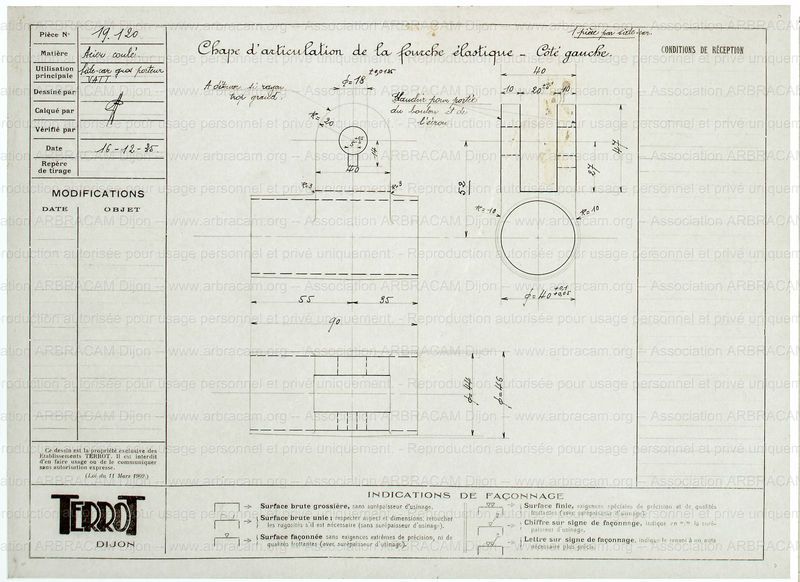 Pièce N° 19.120
Matière Acier coulé.
Utilisation principale Side-car gros porteur
VATT.
Dessiné par
Calqué par
Vérifié par
Date 16-12-35
Repère de tirage
MODIFICATIONS
DATE OBJET
1 pièce par side-car.
Chape d'articulation de la fourche élastique - Côté gauche.
CONDITIONS DE RÉCEPTION
A détourer si rayon
trop grand.
ϕ=18
R=20
Hauteur pour portée
du boulon et de
l'écrou
40
10 20 10
14
40
R=3
R=3
52
27
47
R=10
R=10
ϕ=40 +0,1 +0,05
55 35
90
ϕ=44
ϕ=46
Ce dessin est la propriété exclusive des
Etablissements TERROT. Il est interdit
d'en faire usage ou de le communiquer
sans autorisation expresse.
(Loi du 11 Mars 1902.)
TERROT
DIJON
INDICATIONS DE FAÇONNAGE
Surface brute grossière, sans surépaisseur d'usinage.
Surface brute unie: respecter aspect et dimensions, retoucher
les rugosités s'il est nécessaire (sans surépaisseur d'usinage).
Surface façonnée sans exigences extrêmes de précision, ni de
qualités frottantes (avec surépaisseur d'usinage).
Surface finie, exigences spéciales de précision et de qualités
frottantes (avec surépaisseur d'usinage).
Chiffre sur signe de façonnage, indique en m/m la surépaisseur d'usinage.
Lettre sur signe de façonnage, indique le renvoi à un nota
nécessaire plus précis.
www.arbracam.org -- Association ARBRACAM Dijon -- www.arbracam.org -- Association ARBRACAM Dijon
Reproduction autorisée pour usage personnel et privé uniquement. - Reproduction autorisée pour usage personnel et privé uniquement.